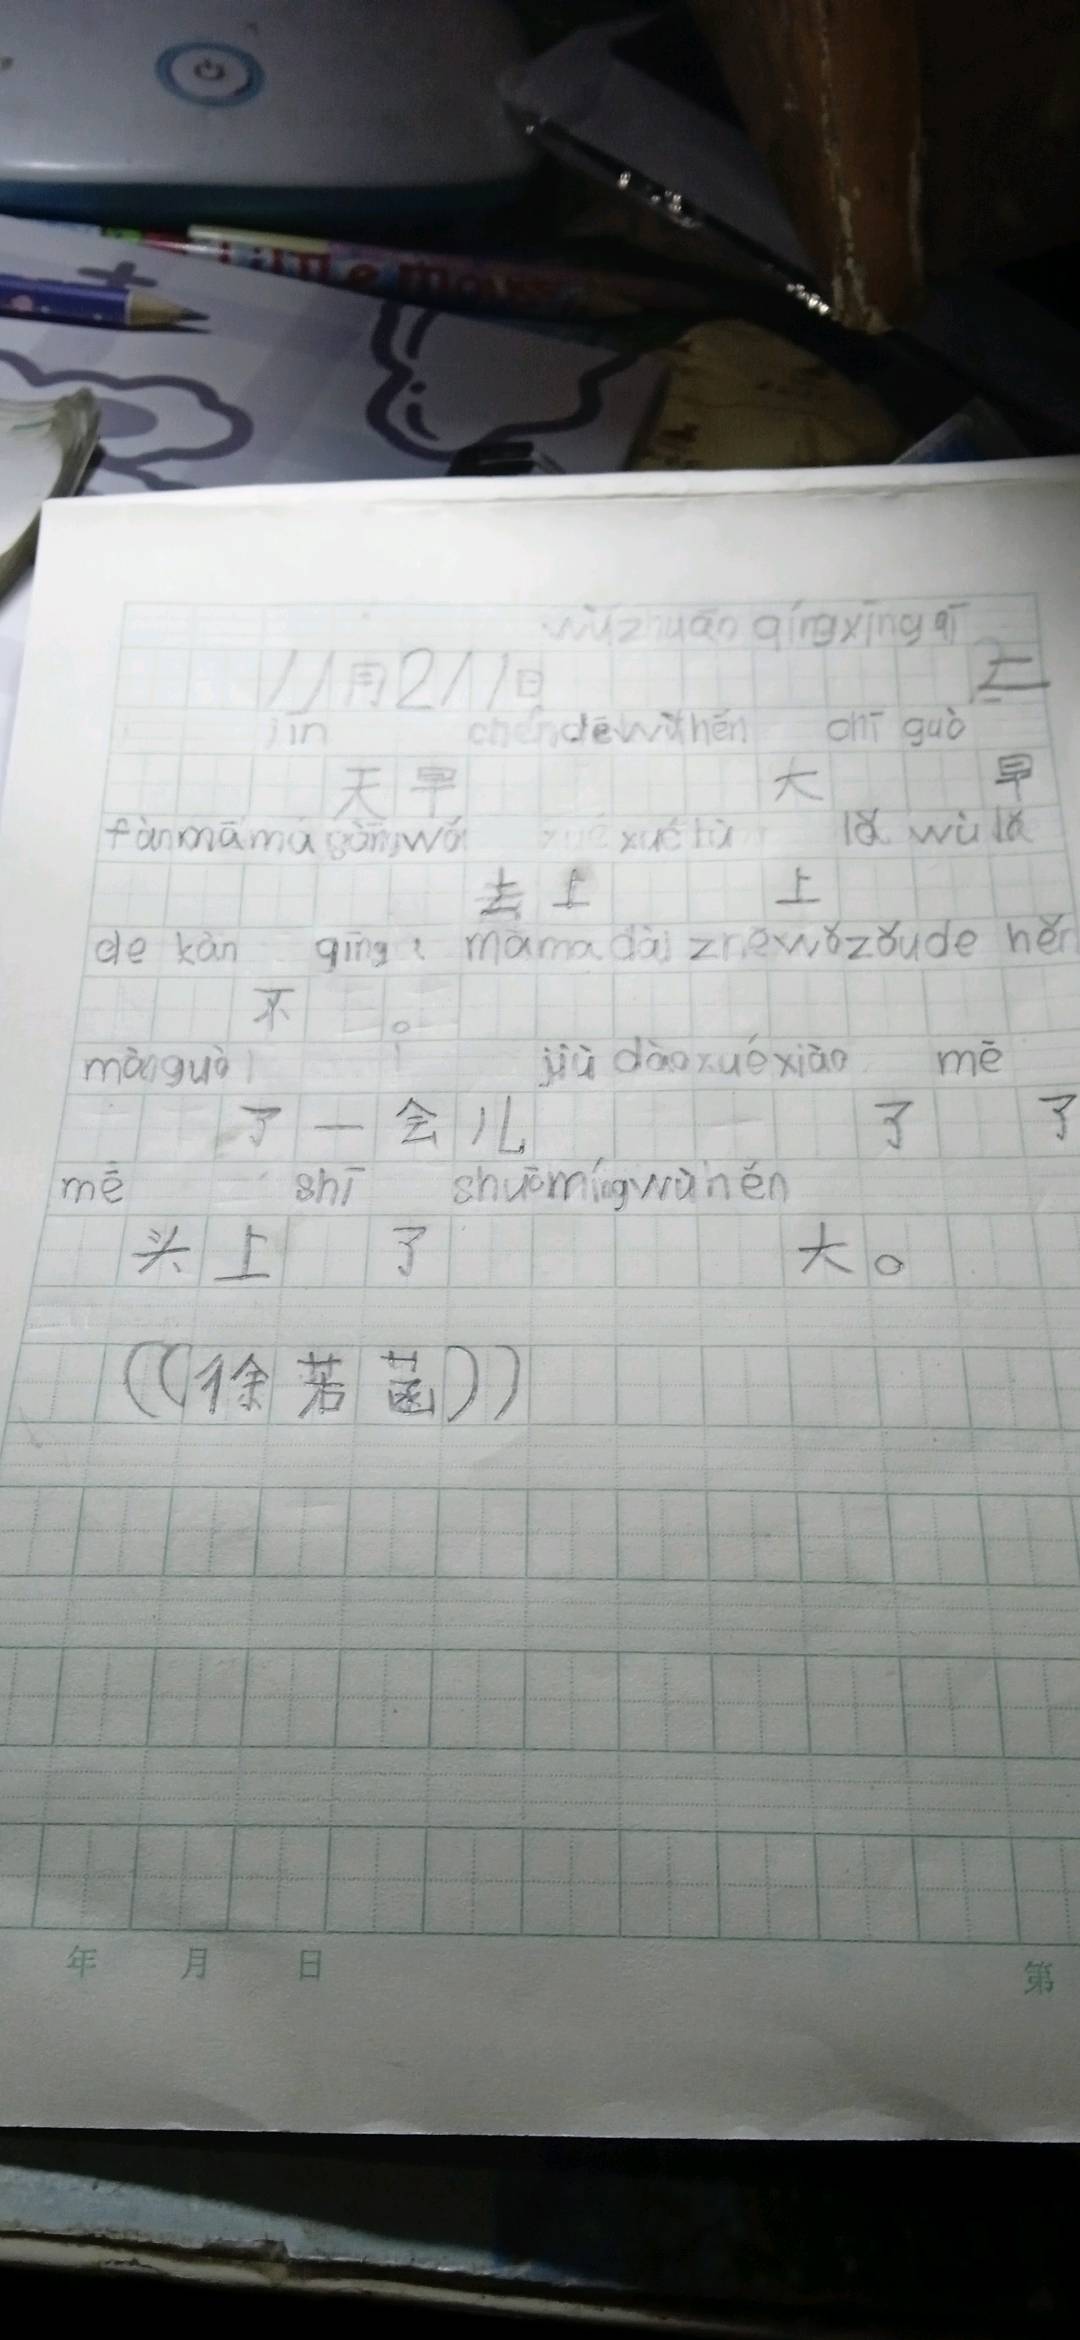 wùzhuǎnqíngxīngqī
11月21日 二
jīn chéndēwùhěn chīguò
天早 大 早
fànmāmāgǎnwǒ xuéxuélù lǎ wù lǎ
去上 上
de kàn qīng māmadàizhēwǒzǒude hěn
不 。
mànguò jiùdàoxuéxiào mē
了一会儿 了 了
mē shī shuōmíngwùhěn
头上 了 大。
((徐若菡))
年 月 日 第